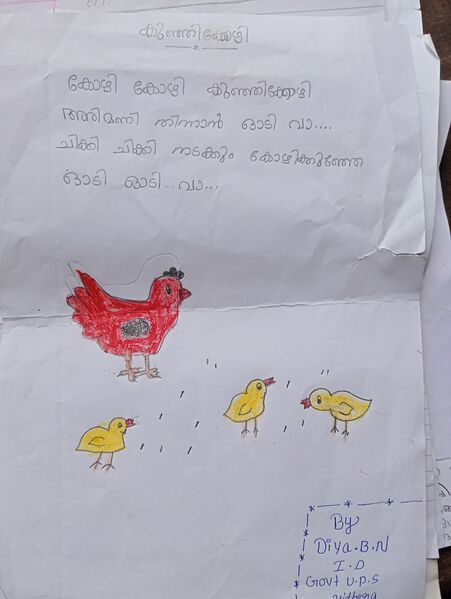 കുഞ്ഞിക്കോഴി
കോഴി കോഴി കുഞ്ഞിക്കോഴി
അരിമണി തിന്നാൻ ഓടി വാ....
ചിക്കി ചിക്കി നടക്കും കോഴിക്കുഞ്ഞേ
ഓടി ഓടി..വാ...
By
Diya.B.N
I.D
Govt U.P.S